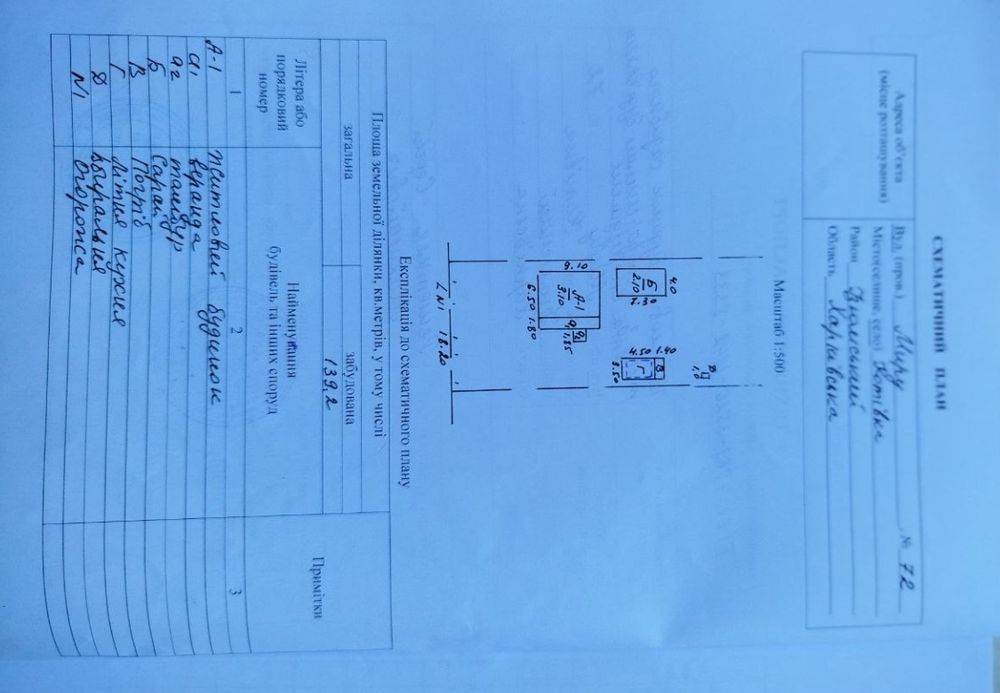 СХЕМАТИЧНИЙ ПЛАН
Адреса об'єкта
(місце розташування)
Вул. (пров.) Миру № 72
Місто(селище, село)
Район
Область Харківська
Масштаб 1:500
Б
2.10
4.0
6.30
А-1
3.10
9.10
6.50 1.80
а1
а2
1.85
4.50 1.40
3.50
Г
В
Д
1,0
N1 18.20
Експлікація до схематичного плану
Площа земельної ділянки, кв.метрів, у тому числі
загальна забудована
139,2
Літера або порядковий номер
Найменування будівель та інших споруд
Примітки
1 2 3
А-1 житловий будинок
а1 веранда
а2 тамбур
Б Сарай
В Погріб
Г Літня кухня
Д Вбиральня
N1 Огорожа